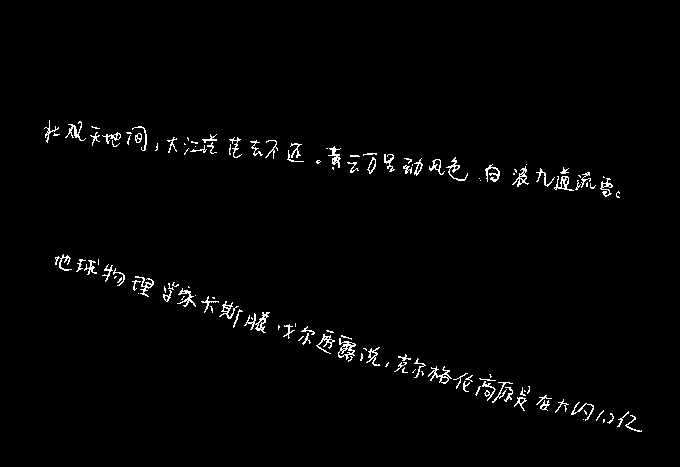 壮观天地间，大江茫茫去不还。黄云万里动风色，白波九道流雪。
地球物理学家卡斯腾·戈尔透露说，克尔格伦高原是在大约1.2亿